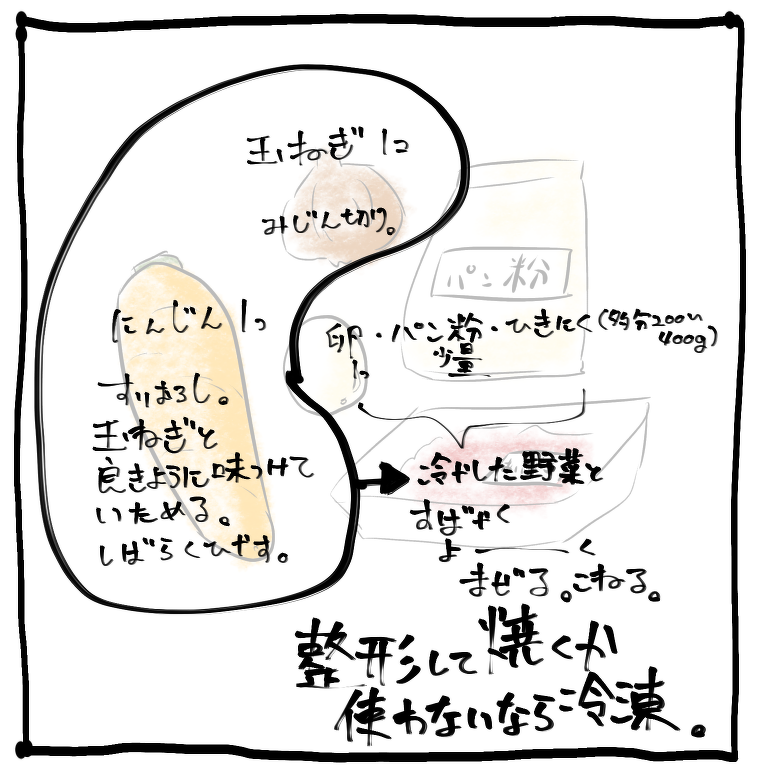 玉ねぎ 1コ
みじん切り。
にんじん 1つ
すりおろし。
玉ねぎと
良きように味つけて
いためる。
しばらくひやす。
パン粉
卵・パン粉・ひきにく(多分200い
400g)
1つ
少量
冷やした野菜と
すばやく
よーーーく
まぜる。こねる。
整形して焼くか
使わないなら冷凍。